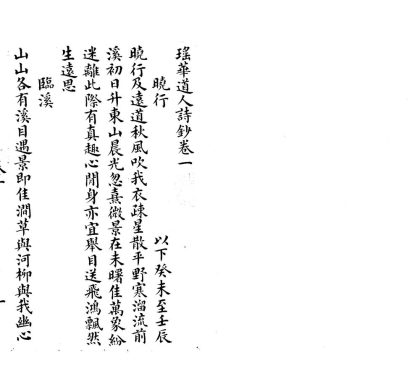 瑤華道人詩鈔卷一
曉行 以下癸未至壬辰
曉行及遠道秋風吹我衣疎星散平野寒溜流前
溪初日升東山晨光忽熹微景在未曙佳萬象紛
迷離此際有真趣心閒身亦宜舉目送飛鴻飄然
生遠思
臨溪
山山各有溪目遇景即佳澗草與河柳與我幽心